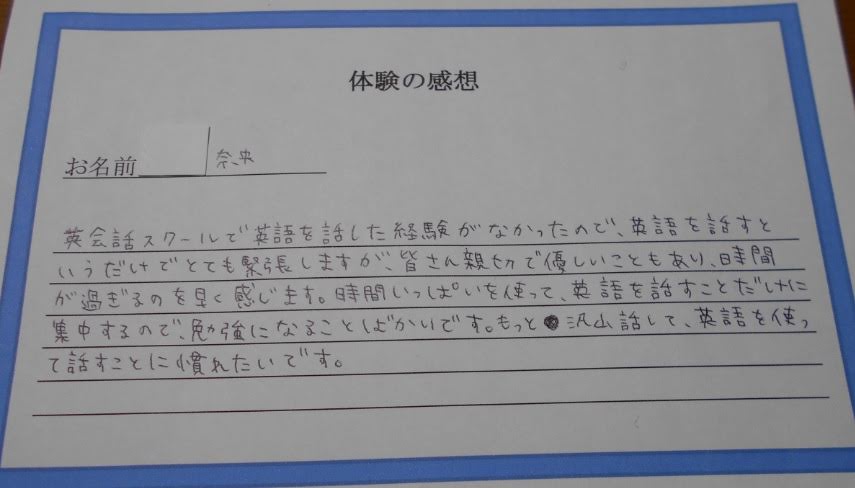 体験の感想
お名前 奈央
英会話スクールで英語を話した経験がなかったので、英語を話すと
いうだけでとても緊張しますが、皆さん親切で優しいこともあり、時間
が過ぎるのを早く感じます。時間いっぱいを使って、英語を話すことだけに
集中するので、勉強になることばかいです。もっと沢山話して、英語を使っ
て話すことに慣れたいです。